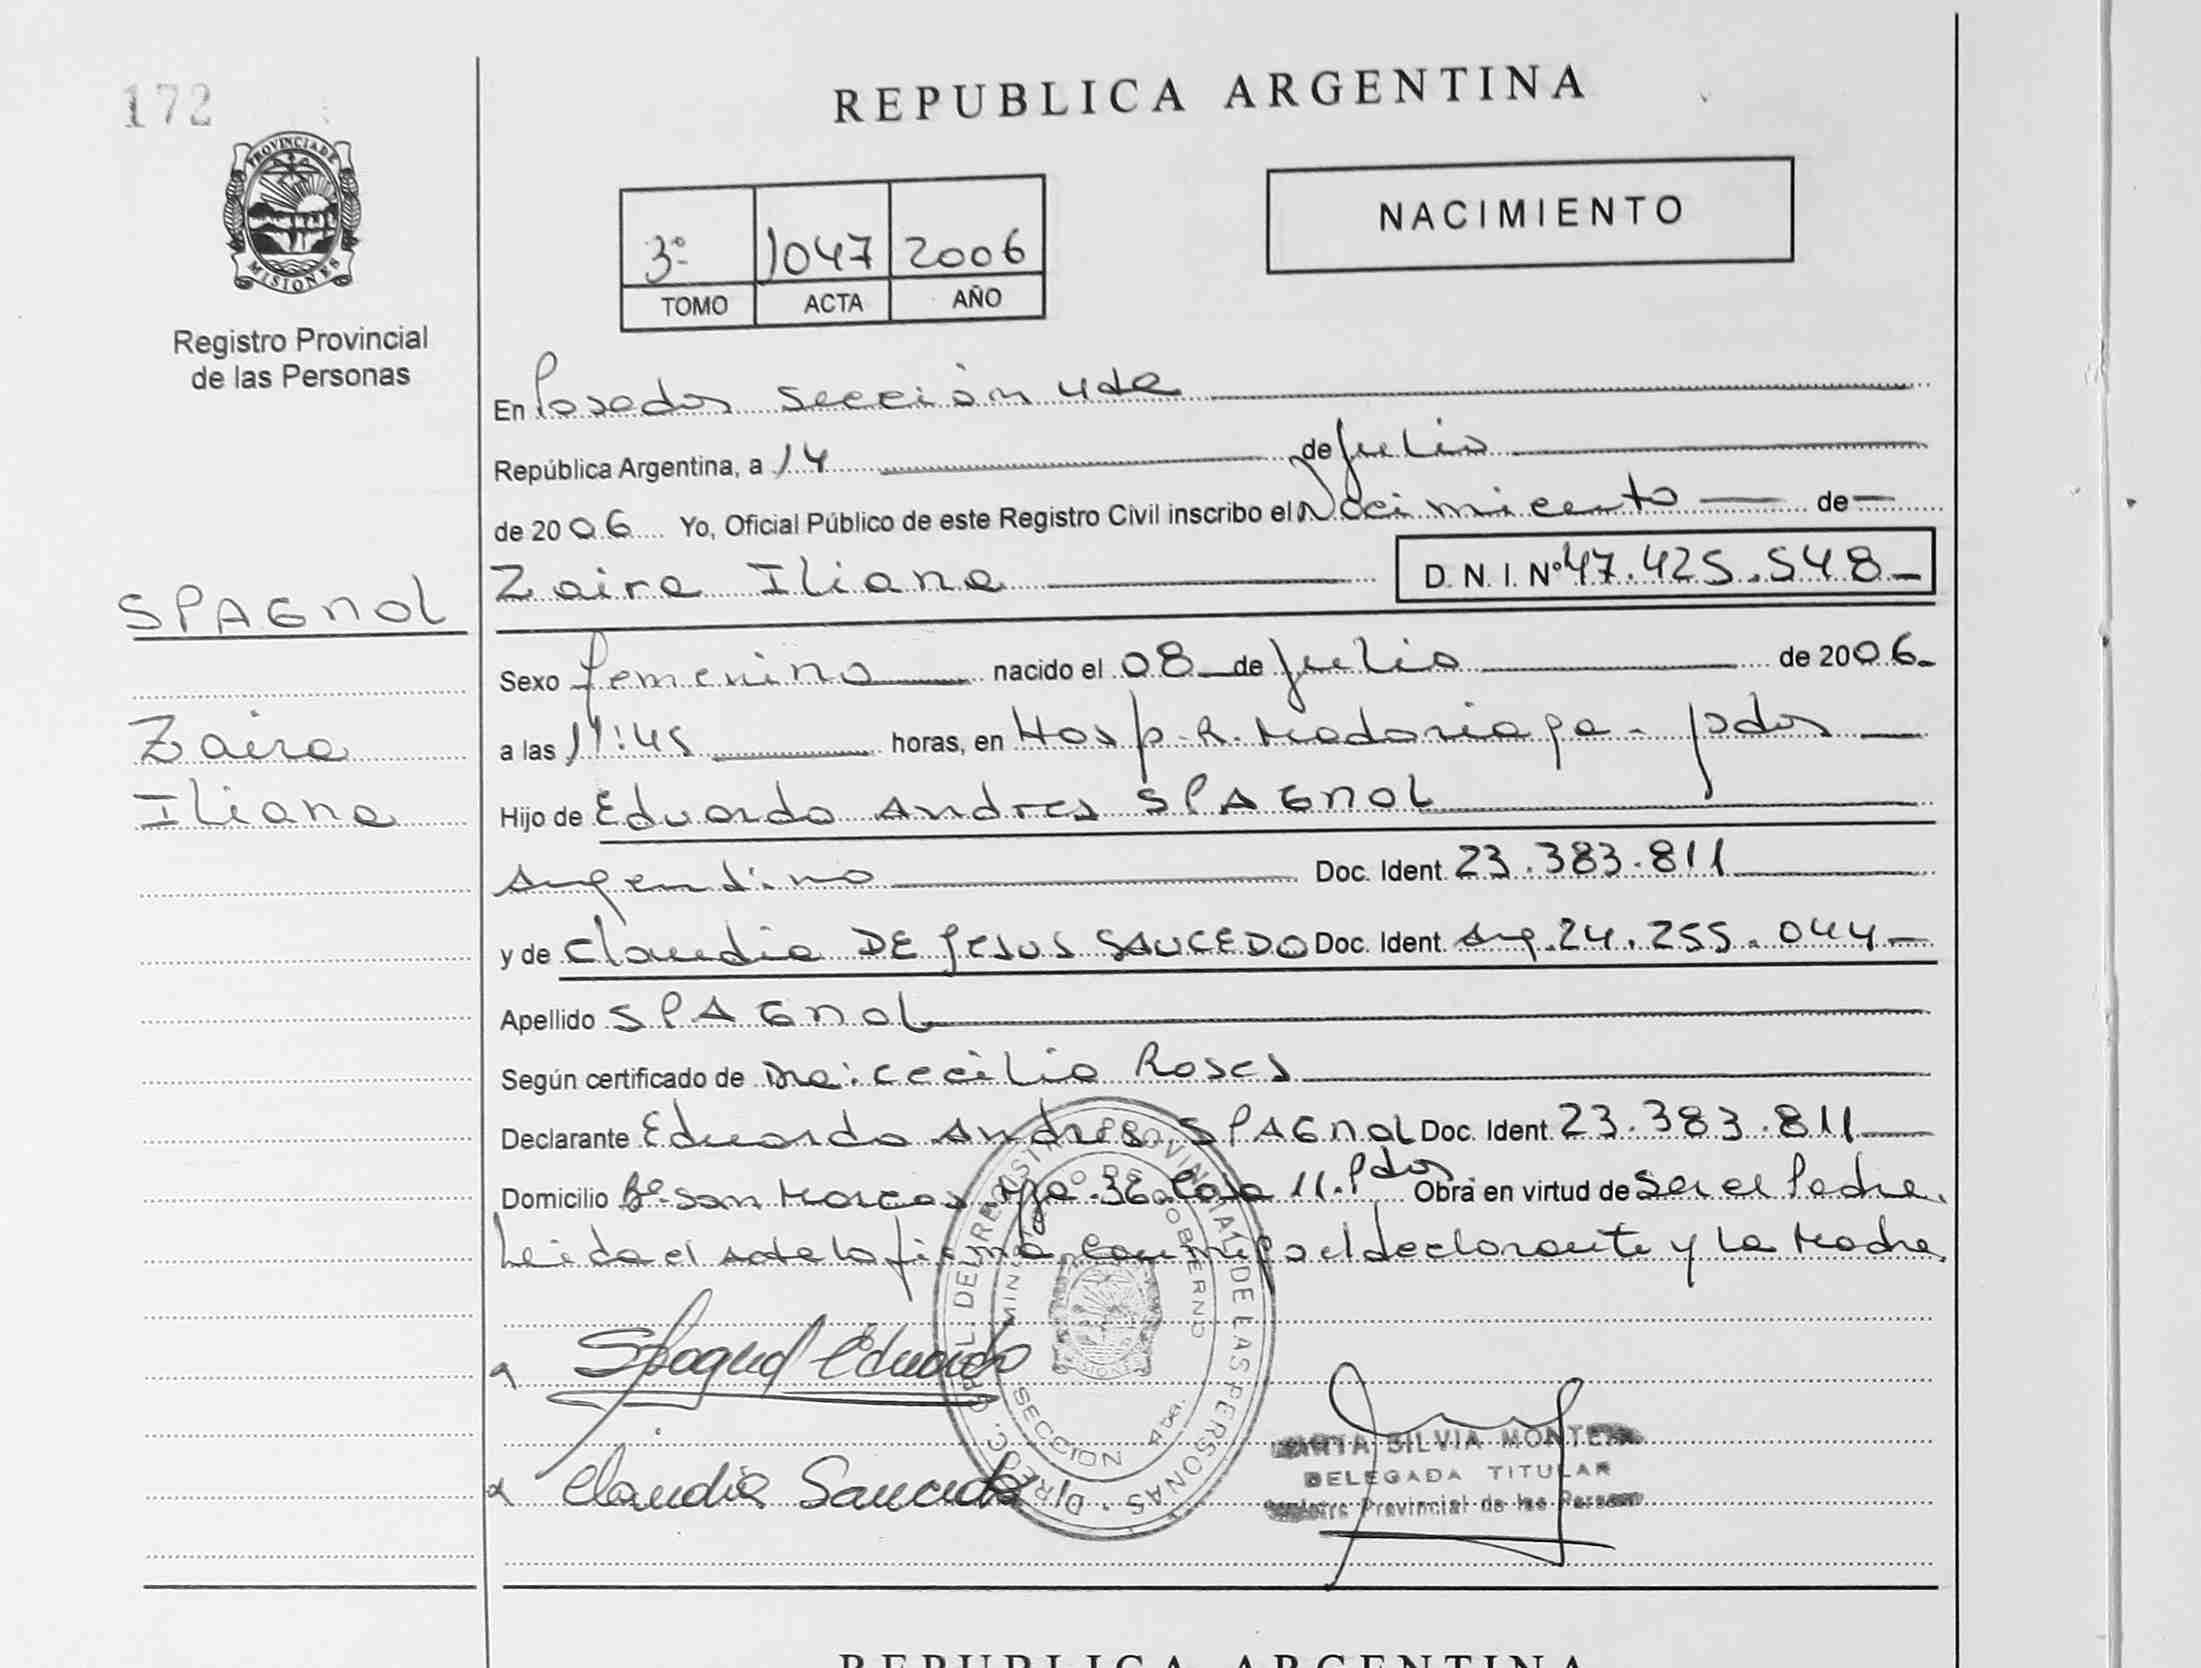 172
REPUBLICA ARGENTINA
PROVINCIA DE MISIONES
Registro Provincial
de las Personas
3º 1047 2006
TOMO ACTA AÑO
NACIMIENTO
En Posadas sección 4ta
República Argentina, a 14 de Julio
de 2006 Yo, Oficial Público de este Registro Civil inscribo el Nacimiento de
Zaira Iliana D. N. I. Nº 47.425.548
SPAGNOL
Zaira
Iliana
Sexo femenino nacido el 08 de Julio de 2006
a las 11:45 horas, en Hosp. R. Madariaga - Pdas
Hijo de Eduardo Andres SPAGNOL
Argentino Doc. Ident. 23.383.811
y de Claudia DE JESUS SAUCEDO Doc. Ident. Arg. 24.255.044
Apellido SPAGNOL
Según certificado de Dra: Cecilia Roses
Declarante Eduardo Andres SPAGNOL Doc. Ident. 23.383.811
Domicilio Bº San Marcos Mzaº 36 Casa 11. Pdas. Obra en virtud de ser el Padre.
Leida el acta la firma conmigo el declarante y la Madre.
Spagnol Eduardo
Claudia Saucedo
DIREC. GRAL. DEL REGISTRO PROVINCIAL DE LAS PERSONAS
MINISTERIO DE GOBIERNO
SECCION 4ta.
SILVIA
DELEGADA TITULAR
Provincial de las Personas
REPUBLICA ARGENTINA